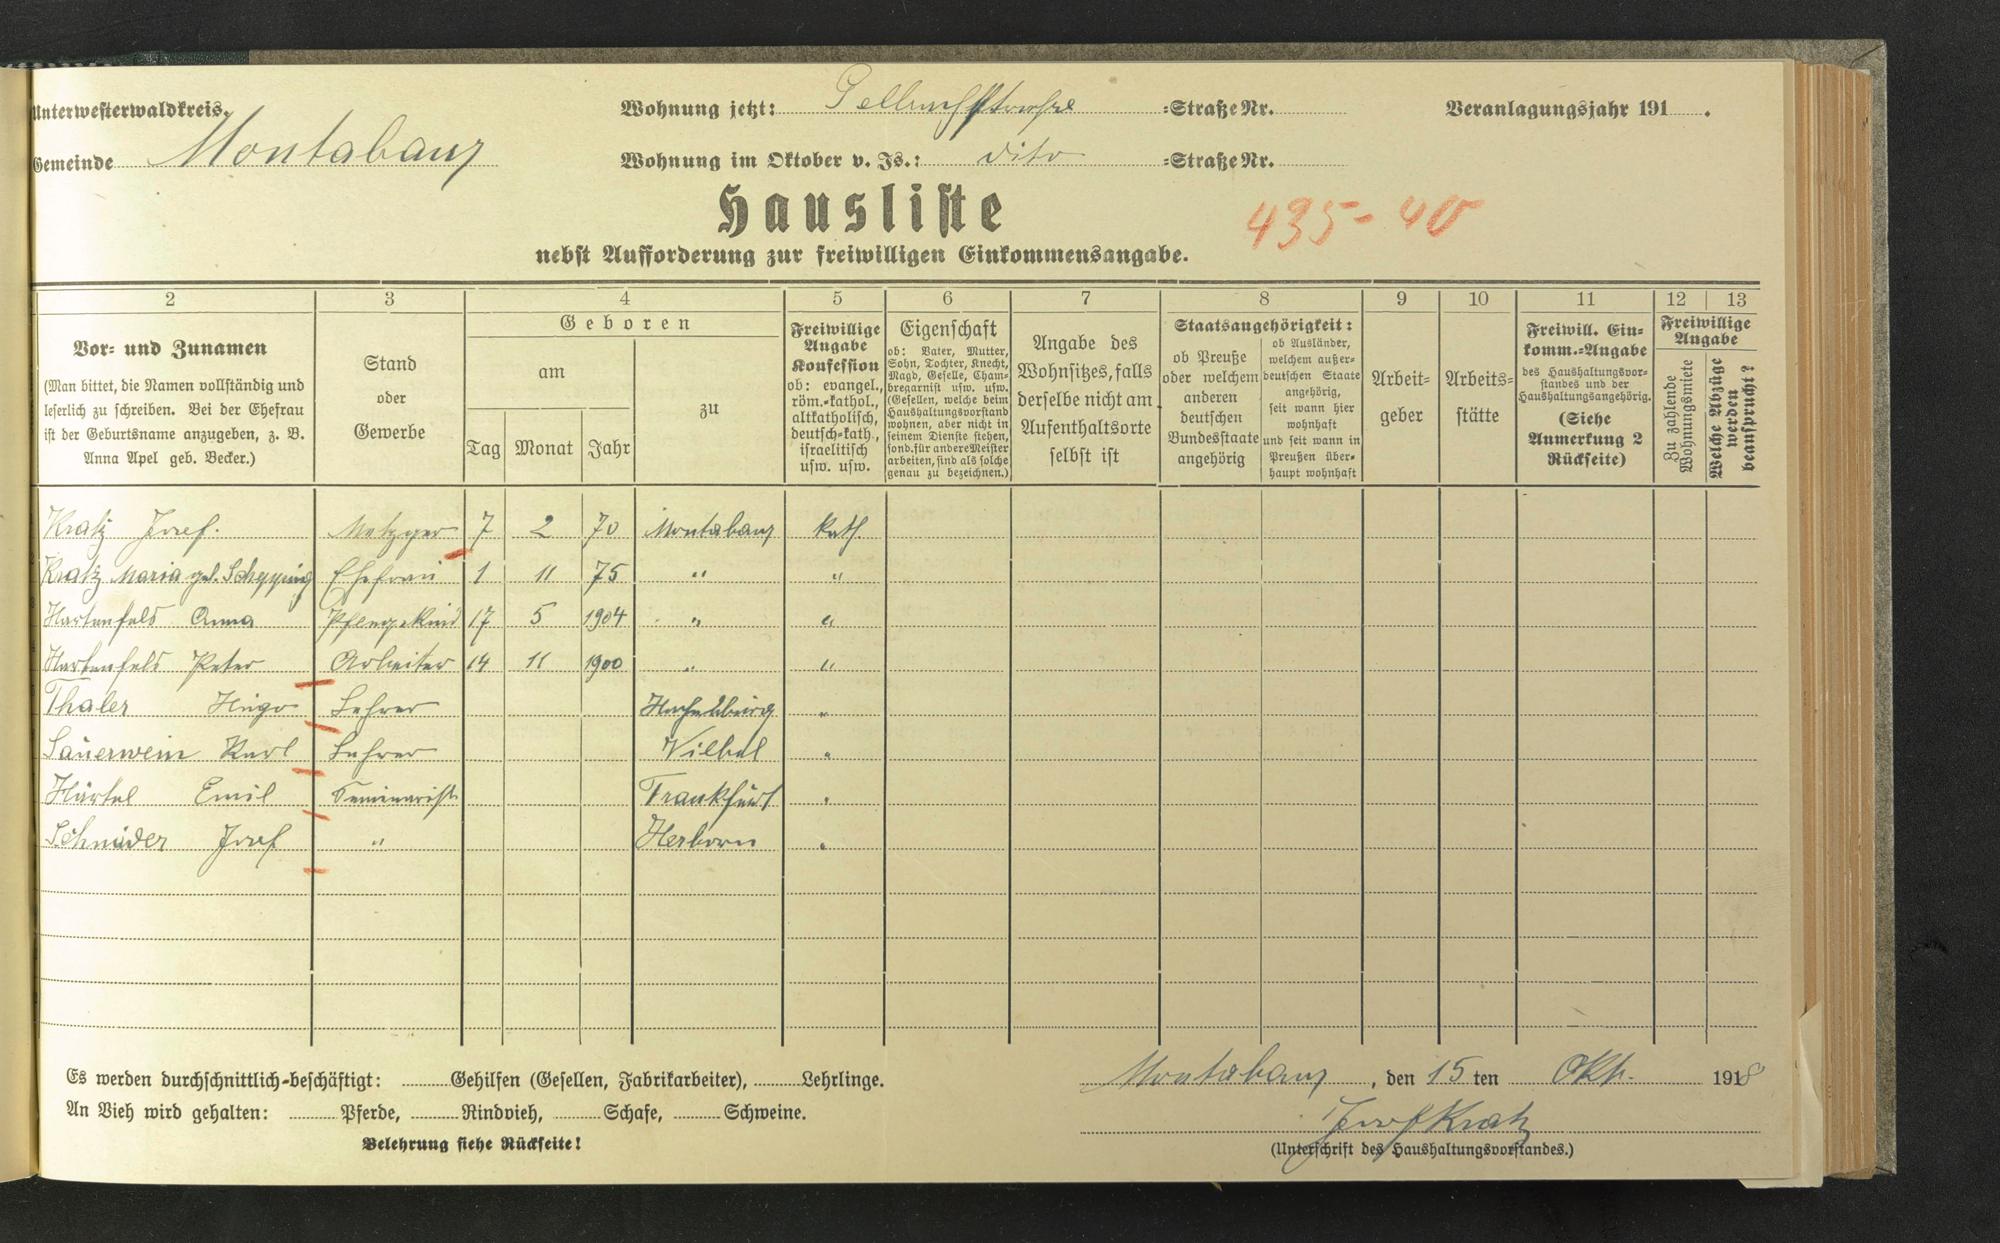 Unterwesterwaldkreis.
Wohnung jetzt: =Straße Nr.
Veranlagungsjahr 191 .
Gemeinde Montabaur
Wohnung im Oktober v. Js.: dito =Straße Nr.
Hausliste
435-40
nebst Aufforderung zur freiwilligen Einkommensangabe.
2 3 4 5 6 7 8 9 10 11 12 13
Vor= und Zunamen
(Man bittet, die Namen vollständig und
leserlich zu schreiben. Bei der Ehefrau
ist der Geburtsname anzugeben, z. B.
Anna Apel geb. Becker.)
Stand
oder
Gewerbe
Geboren
am
Tag Monat Jahr
zu
Freiwillige
Angabe
Konfession
ob: evangel.,
röm.-kathol.,
altkatholisch,
deutsch-kath.,
israelitisch
usw. usw.
Eigenschaft
ob: Vater, Mutter,
Sohn, Tochter, Knecht,
Magd, Geselle, Cham-
bregarnist usw. usw.
(Gesellen, welche beim
Haushaltungsvorstand
wohnen, aber nicht in
seinem Dienste stehen,
sond. für andere Meister
arbeiten, sind als solche
genau zu bezeichnen.)
Angabe des
Wohnsitzes, falls
derselbe nicht am
Aufenthaltsorte
selbst ist
Staatsangehörigkeit:
ob Preuße
oder welchem
anderen
deutschen
Bundesstaate
angehörig
ob Ausländer,
welchem außer-
deutschen Staate
angehörig,
seit wann hier
wohnhaft
und seit wann in
Preußen über-
haupt wohnhaft
Arbeit=
geber
Arbeits=
stätte
Freiwill. Ein-
komm.=Angabe
des Haushaltungsvor-
standes und der
Haushaltungsangehörig.
(Siehe
Anmerkung 2
Rückseite)
Freiwillige
Angabe
Zu zahlende
Wohnungsmiete
Welche Abzüge
werden
beansprucht?
Kratz Josef. Metzger 7 2 70 Montabaur kath.
Kratz Maria geb. Schepping Ehefrau 1 11 75 " "
Hartenfels Anna Pflegekind 17 5 1904 " "
Hartenfels Peter Arbeiter 14 11 1900 " "
Thaler Hugo Lehrer Hachenburg "
Sauerwein Karl Lehrer Vilbel "
Härtel Emil Seminarist Frankfurt "
Schneider Josef " Herborn "
Es werden durchschnittlich=beschäftigt: Gehilfen (Gesellen, Fabrikarbeiter), Lehrlinge.
Montabaur , den 15 ten Okt. 1918
An Vieh wird gehalten: Pferde, Rindvieh, Schafe, Schweine.
Josef Kratz
Belehrung siehe Rückseite!
(Unterschrift des Haushaltungsvorstandes.)